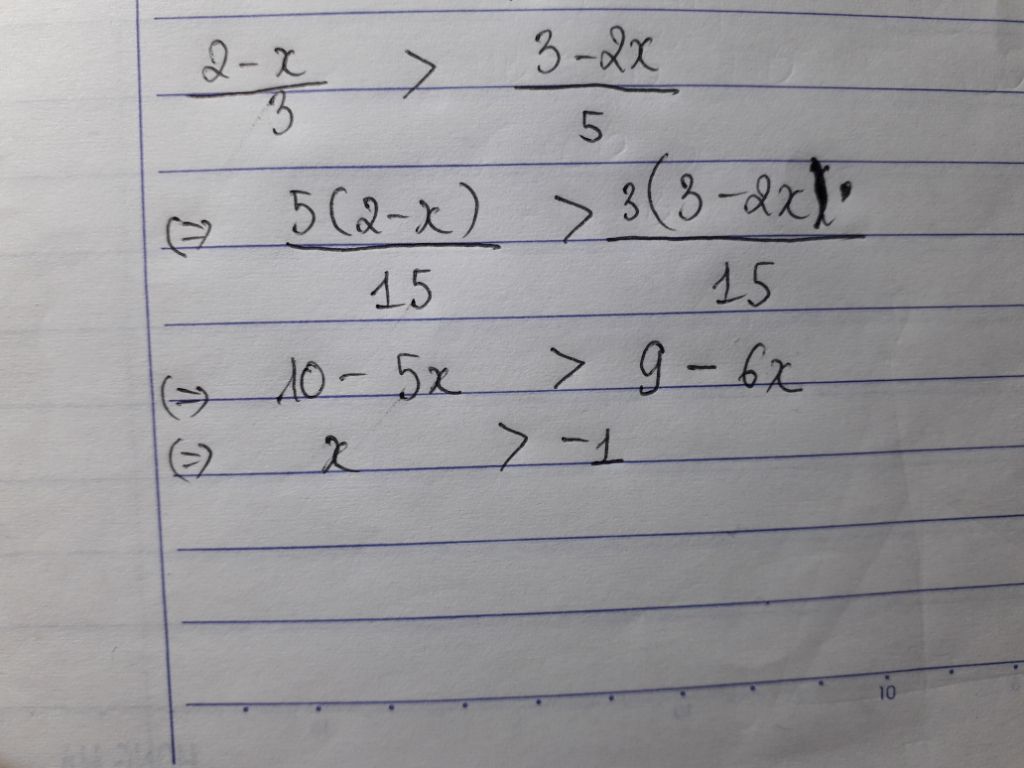 2 - x / 3 > 3 - 2x / 5
(=) 5(2 - x) / 15 > 3(3 - 2x). / 15
(=) 10 - 5x > 9 - 6x
(=) x > -1
10